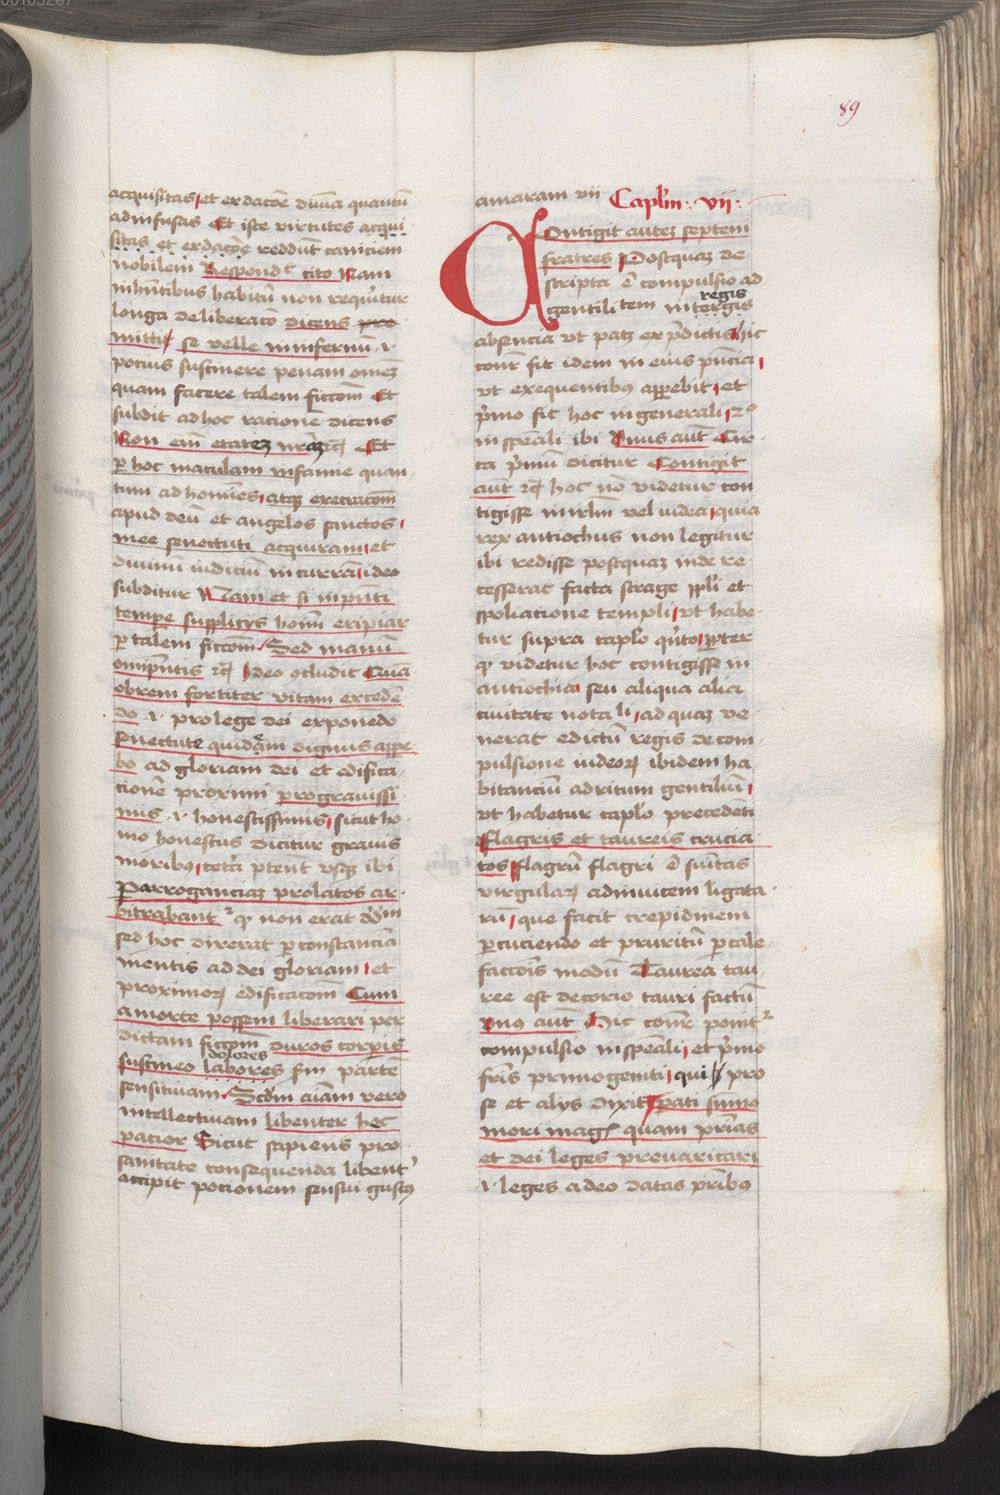 89
acquisitas, et ex datōe diuīa quantū
ad infusas Et iste virtutes acqui
sitas et ex datōe reddūt caniciem
nobilem Respondꝭ cito Nam
in hūtibus habitū non requiritur
longa deliberatō dicens pro
mitti se velle in infernū .i.
pocius sustinere penam omēz
quam facere talem fictiōm Et
subdit ad hoc racionē dicens
Non em̄ etatez nr̄az ⁊cͭ Et
ꝑ hoc maculam infamie quan
tum ad homīes, atqꝫ execratiōm
apud deū et angelos sanctos,
mee senectuti acquiram, et
diuinū iudiciū incurrā, ideo
subditur Nam et si in pn̄ti
tempe supplicijs homī eripiar
ꝑ talem fictiōm Sed manū
omīpn̄tis ⁊cͭ Ideo ɔcludit Quā
obrem fortiter vitam excedē
do .i. pro lege dei exponēdo
Senectute quidam dignus appe
bo ad gloriam dei et edifica
cionē proximi pro grauissi
mis .i. honestissimis, sicut ho
mo honestus dicitur grauis
moribus, cetera ptent vsqꝫ ibi
ꝑ arroganciaꝫ prolatos ar
bitrabant ꝙ non erat
sed hoc dixerat ꝑ constanciā
mentis ad dei gloriam, et
proximoꝝ edificatiōm Cum
a morte possem liberari per
dictam fictiōm duros corꝑis
dolores
sustineo labores sm̄ partē
sensitiuam Scd̄m aīam vero
intellectiuam libenter hec
pacior Sicut sapiens pro
sanitate consequenda libentʼ
accipit pocionem sensui gustꝰ
amaram vii Caplʼm vii
Contigit autez septem
fratres Postquaꝫ de
scripta ē compulsio ad
regis
gentilitem in tergis
absencia vt patꝫ ex p̄dictis hic
conr̄ fit idem in eius pn̄cia,
vt exequentibꝰ apperebit, et
p̄mo fit hoc in generali, 2º
in speāli ibi Vnus aūt Cir
ca p̄mū dicitur Contigit
aūt ⁊cͭ hoc nō videtur con
tigisse in irl̄m vel iudea, quia
rex antiochus non legitur
ibi redisse postquaꝫ inde re
cesserat facta strage ppl̄i et
spoliacione templi, vt habe
tur supra caplo qn̄to, ꝓpter
ꝙ videtur hoc contigisse in
antiochia seu aliqua alia
ciuitate notali, ad quaꝫ ve
nerat edictū regis de com
pulsione iudeoꝝ ibidem ha
bitanciū ad ritum gentiliū,
vt habetur caplo precedēti
Flagris et taureis crucia
tos, flagrū flagri ē sūitas
virgulaꝝ adinuicem ligata
rū, que facit trepidinem
ꝑcuciendo et pruritū ꝑ tale
factiōis modū Taurea tau
ree est de corio tauri factū
Vnꝰ aūt Hic conr̄ ponitʳ
compulsio in speāli, et p̄mo
fr̄is primogeniti, qui pro
se et alijs dixit, pati sumo
mori magꝭ quam pr̄ias
et dei leges preuaricari
.i. leges a deo datas pr̄ibꝰ